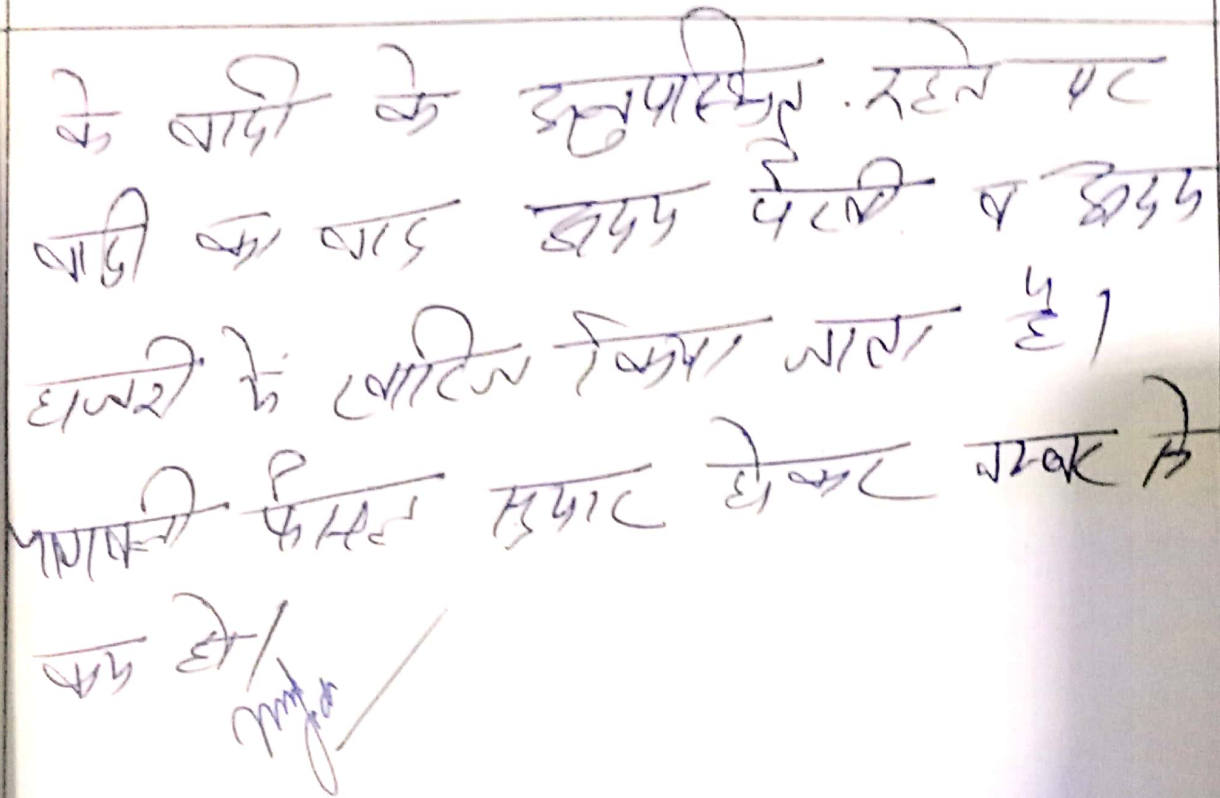 के वादी के अनुपस्थित रहने पर
वादी का वाद अदम पैरवी व अदम
हाजरी में खारिज किया जाता है।
पत्रावली फैसल सुमार होकर नम्बर से
कम हो।